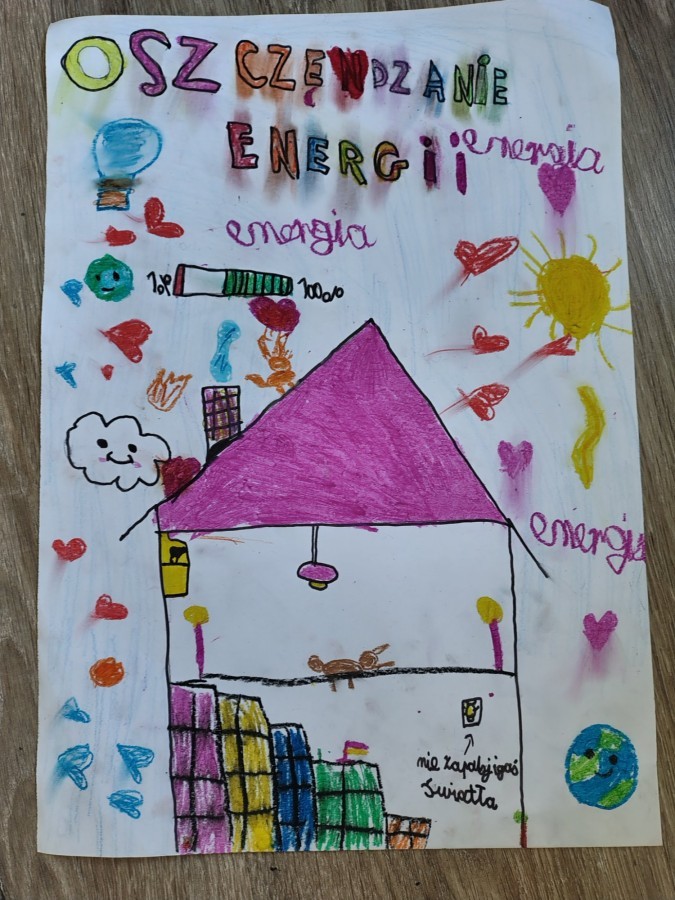 OSZCZĘDZANIE
ENERGii energia
energia
1% 100%
energia
nie zapalaj i gaś
Światła